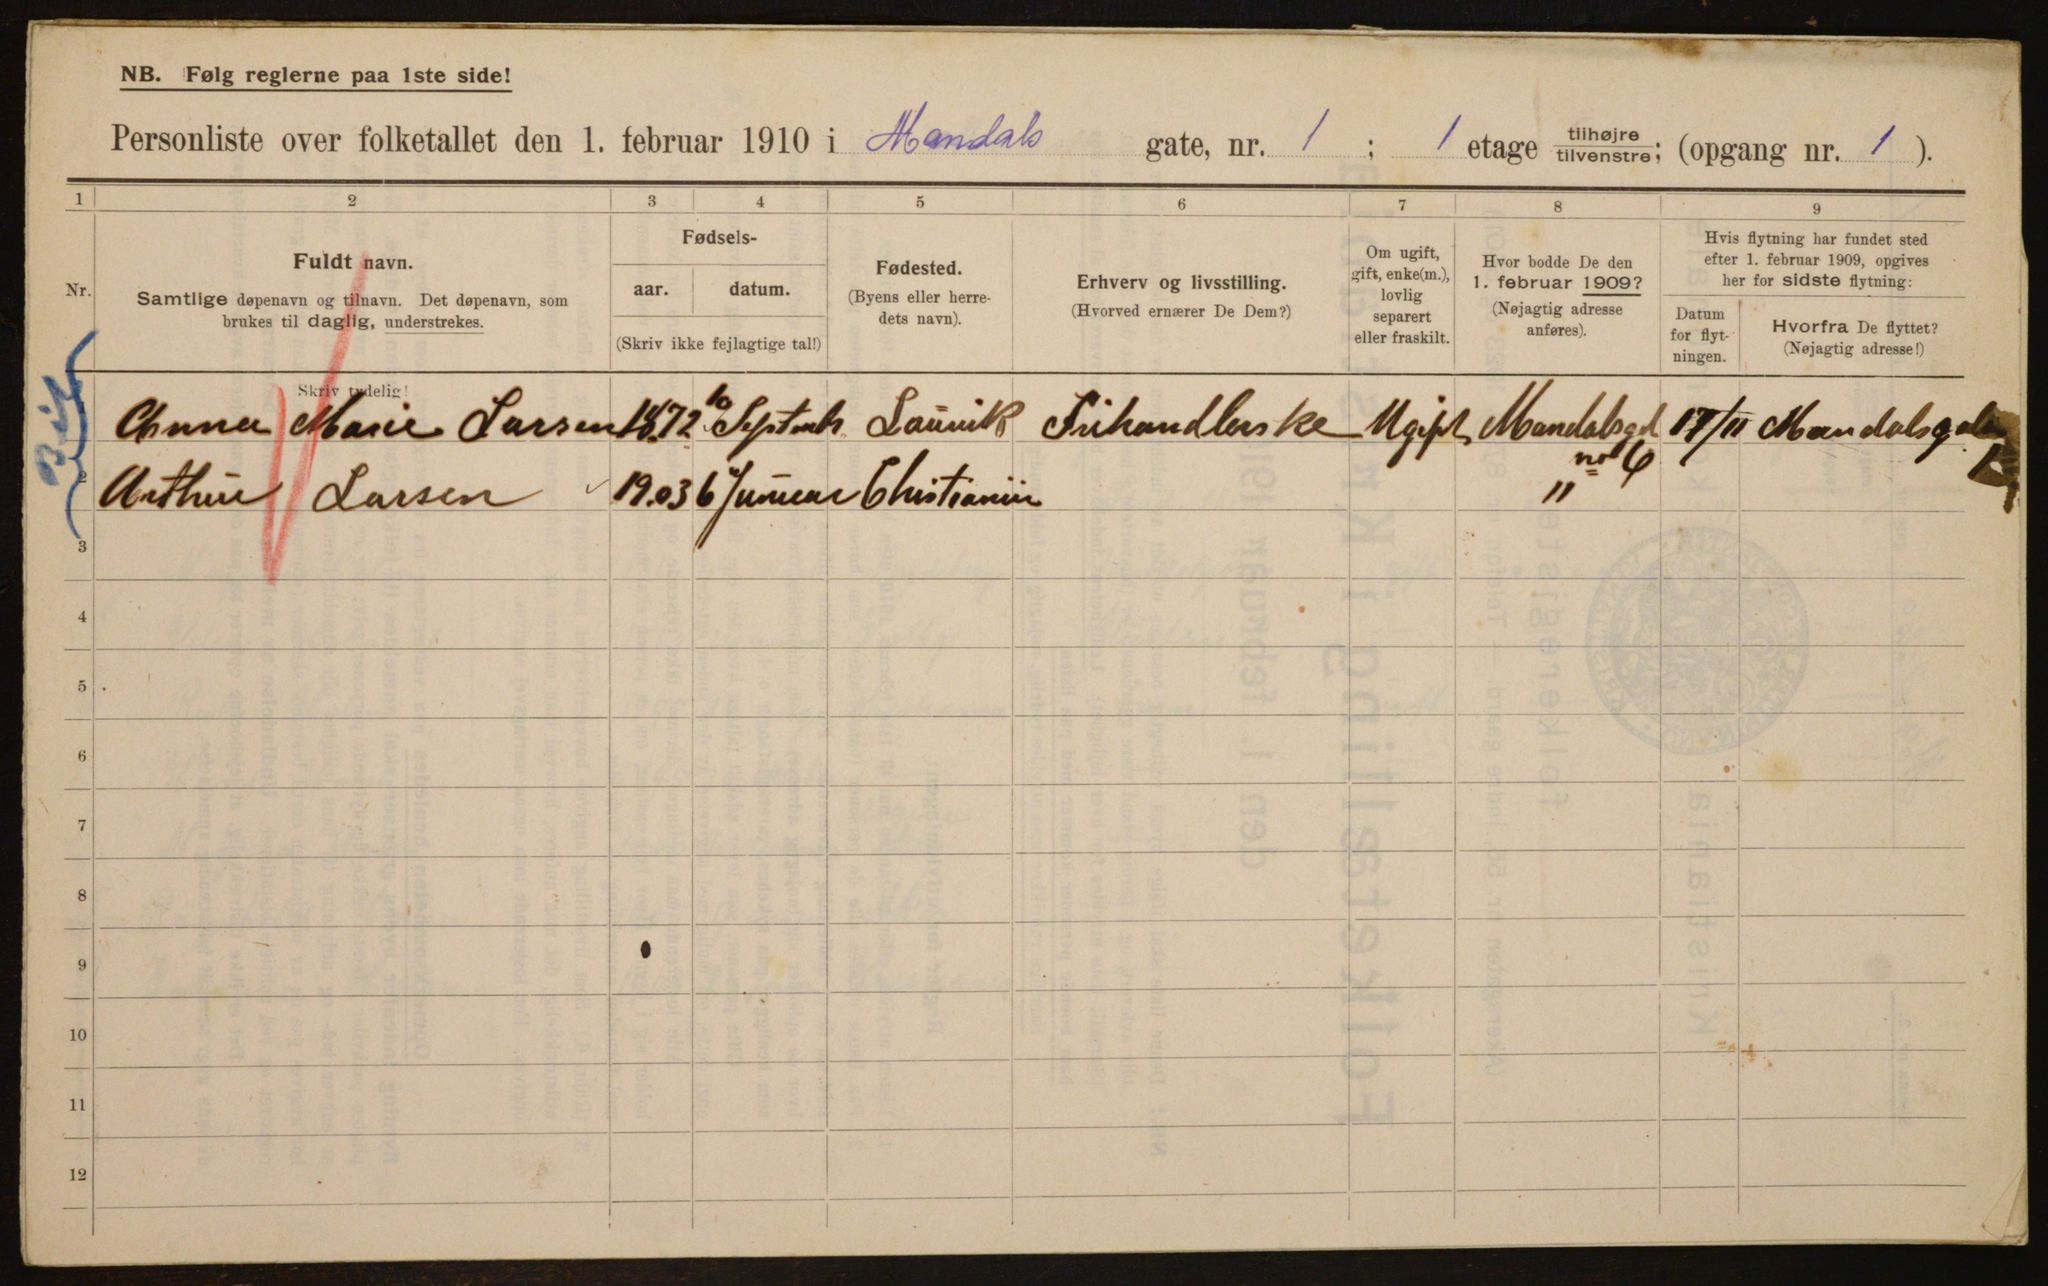 NB. Følg reglerne paa 1ste side!
Personliste over folketallet den 1. februar 1910 i Mandals gate, nr. 1 ; 1 etage tilhøjre/tilvenstre; (opgang nr. 1 ).
1 2 3 4 5 6 7 8 9
Nr.
Fuldt navn.
Samtlige døpenavn og tilnavn. Det døpenavn, som
brukes til daglig, understrekes.
Skriv tydelig!
Fødsels-
aar. datum.
(Skriv ikke fejlagtige tal!)
Fødested.
(Byens eller herre-
dets navn).
Erhverv og livsstilling.
(Hvorved ernærer De Dem?)
Om ugift,
gift, enke(m.),
lovlig
separert
eller fraskilt.
Hvor bodde De den
1. februar 1909?
(Nøjagtig adresse
anføres).
Hvis flytning har fundet sted
efter 1. februar 1909, opgives
her for sidste flytning:
Datum
for flyt-
ningen.
Hvorfra De flyttet?
(Nøjagtig adresse!)
Anna Marie Larsen 1872 10 Septemb Laurvik Frihandlerske Ugift Mandalsgd 17/11 Mandalsgaden
no 6
2 Arthur Larsen 1903 6 Januar Christania "
3
4
5
6
7
8
9
10
11
12